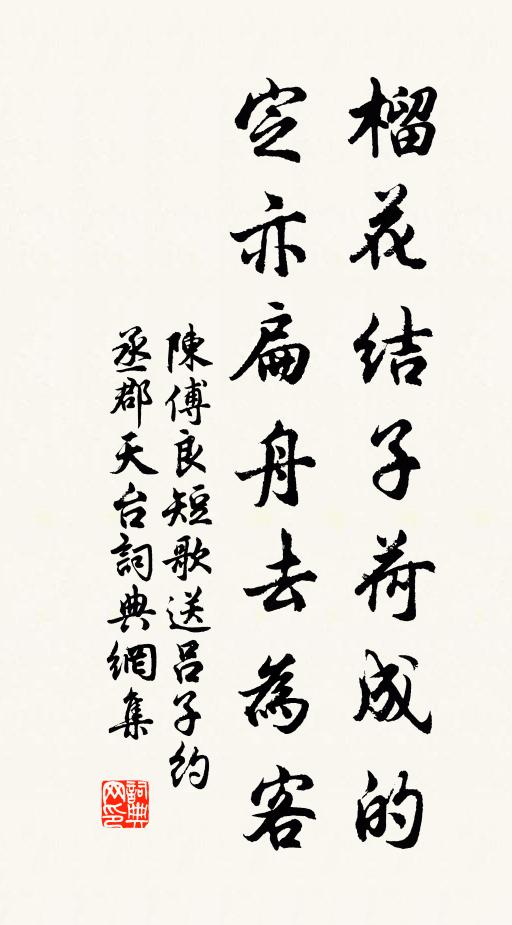 榴花結子荷成的
定亦扁舟去為客
陳傅良短歌送呂子約
丞郡天台詞典網集
詞典
网印